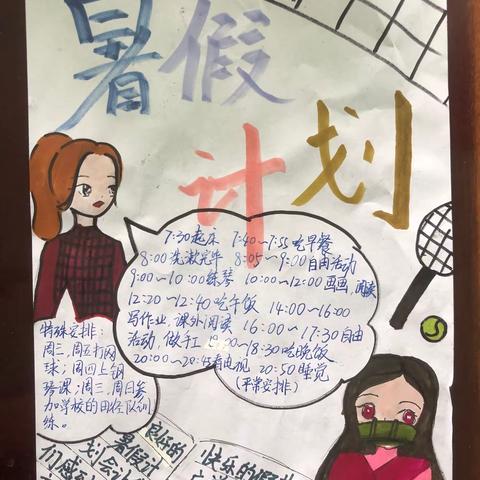 暑假
计划
7:30起床 7:40~7:55吃早餐
8:00洗漱完毕 8:05~9:00自由活动
9:00~10:00练琴 10:00~12:00画画,阅读
12:20~12:40吃午饭 14:00~16:00
写作业,课外阅读 16:00~17:30自由
活动,做手工 18:00~18:30吃晚饭
20:00~20:45看电视 20:50睡觉
(平常安排)
特殊安排:
周二,周五打网
球;周四上钢
琴课;周三,周日参
加学校的田径队训
练。
暑假计
划会让
们感
快乐的假